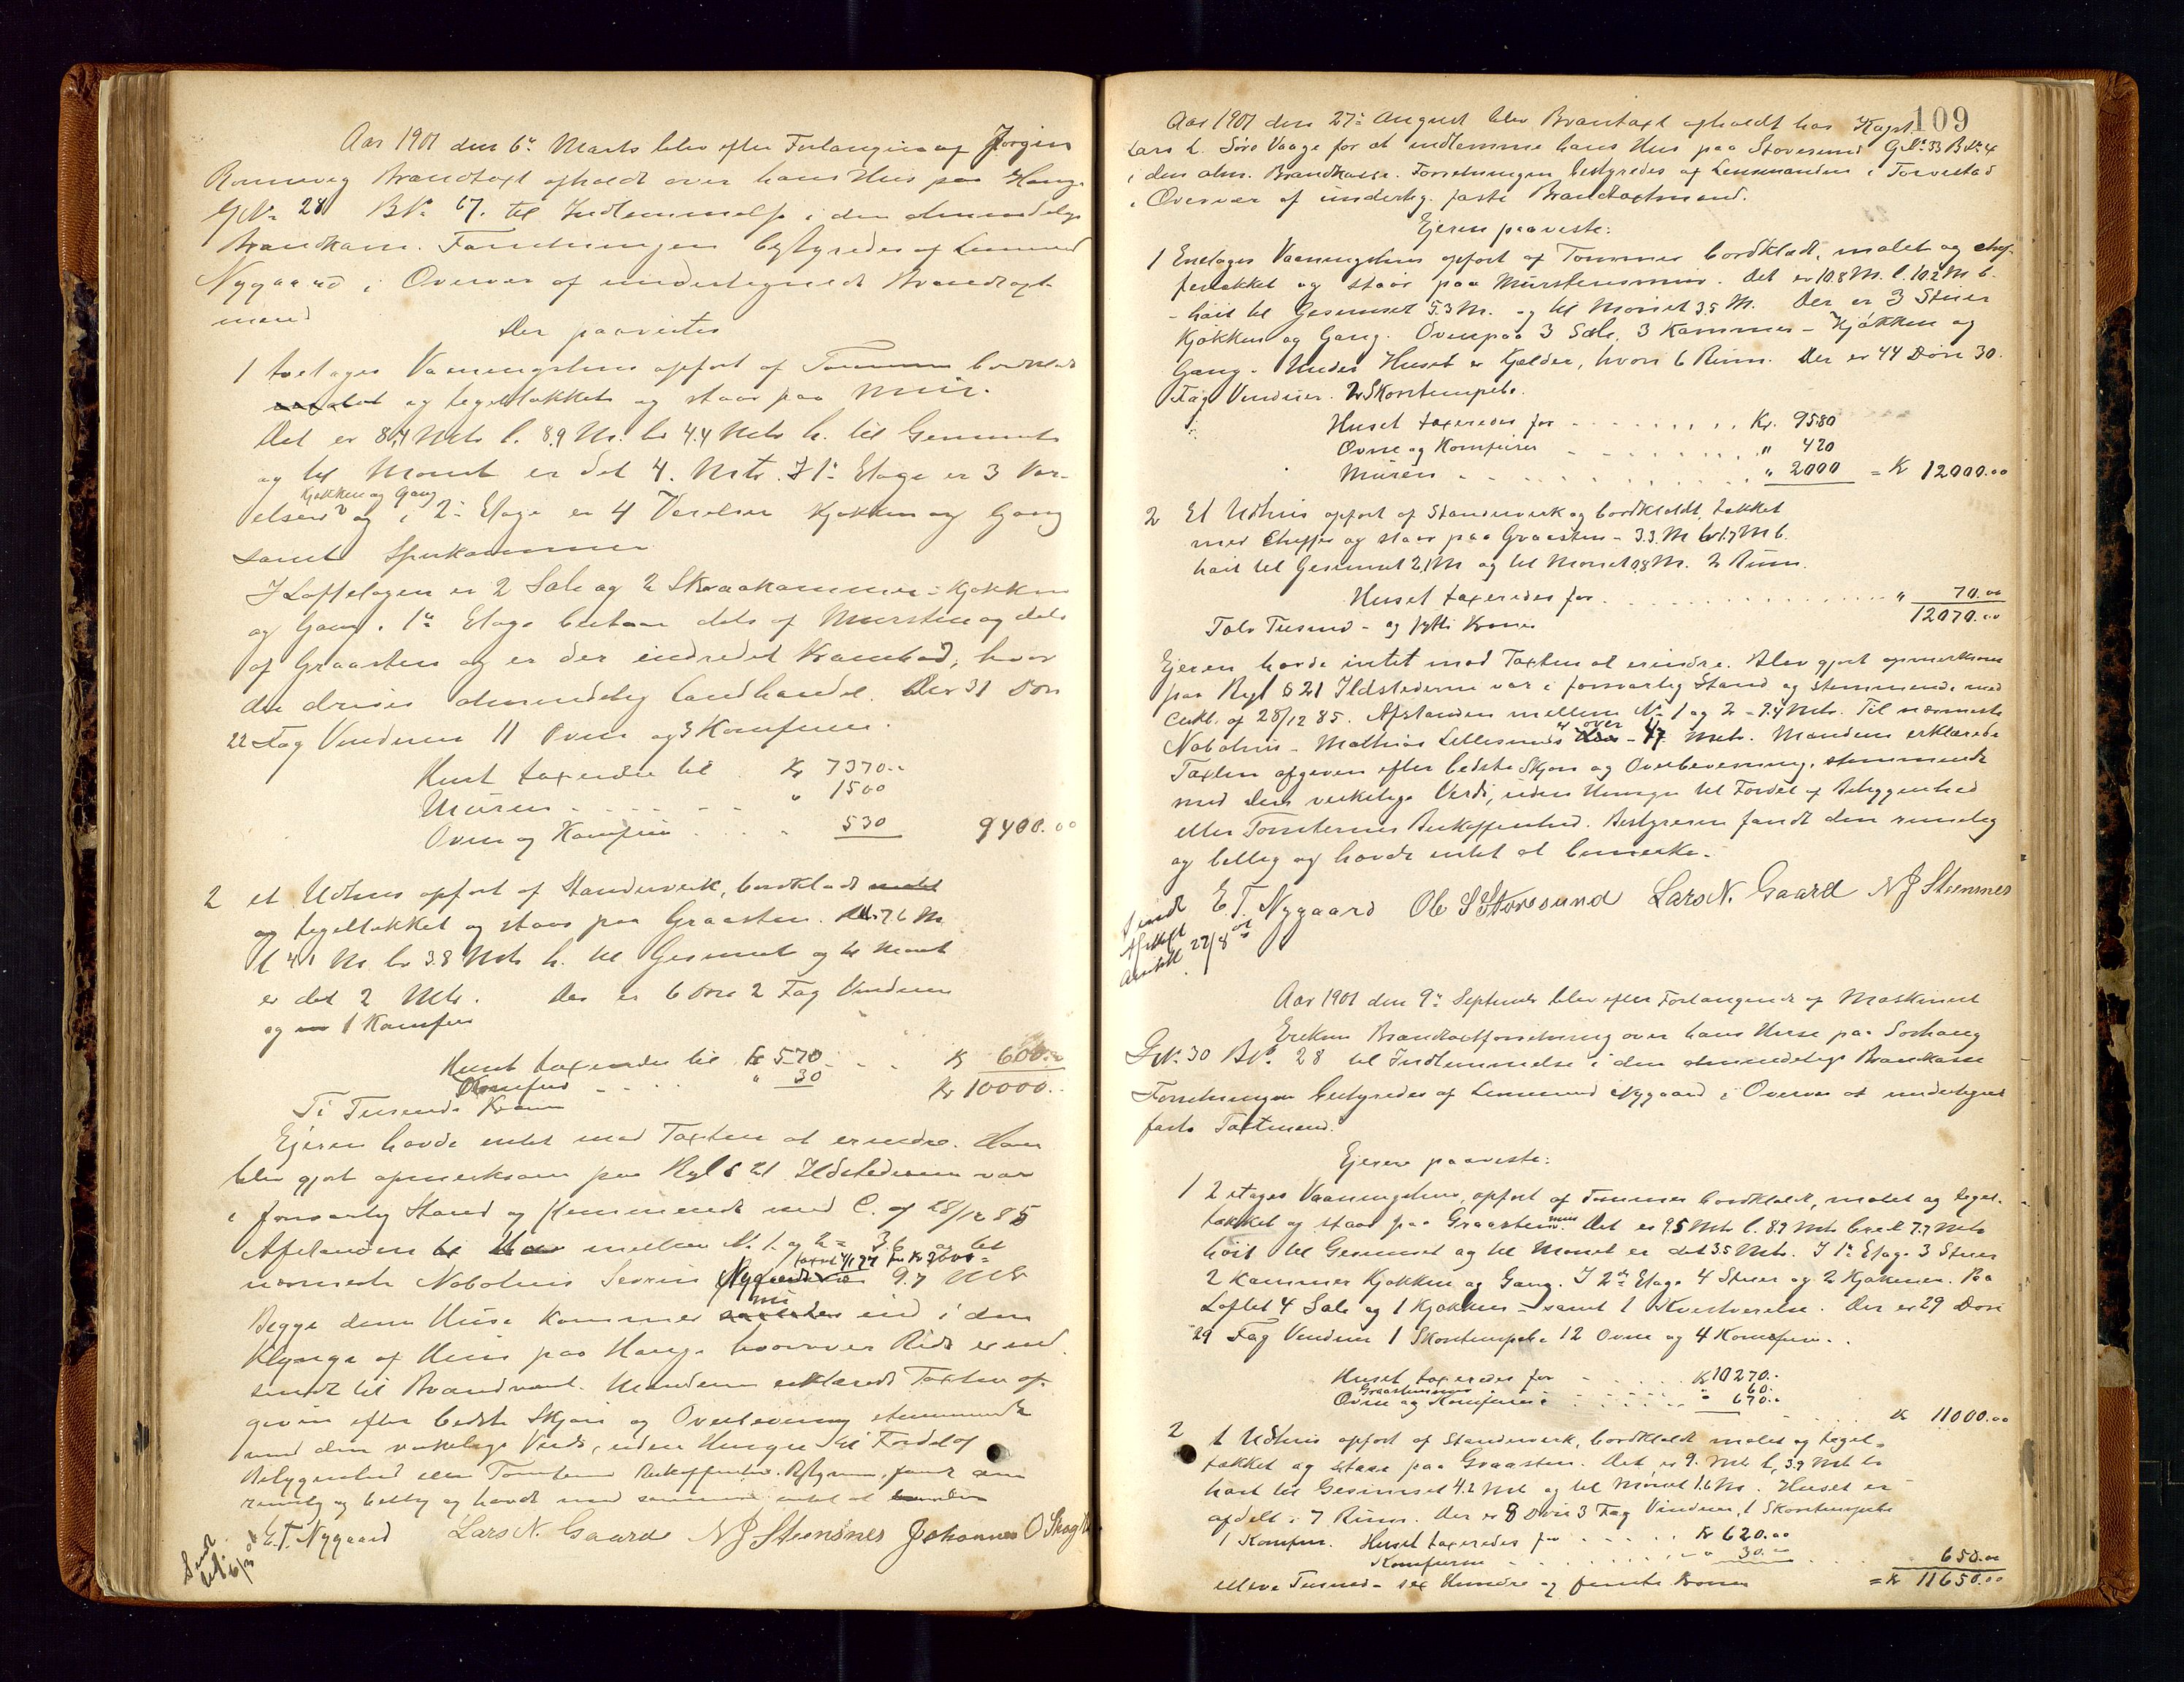 Aar 1901 den 6te Marts blev efter Forlangende af Jørgen
Rønnevig Brandtaxt afholdt over hans Hus paa Hauge
GNr 28 BNr 67. til Indlemmelse i den almindelige
Brandkasse. Forretningen bestyredes af Lensmand
Nygaard i Overvær af undertegnede Brandtaxt
mænd
Der paavistes
1 toetages Vaaningshus opført af Tømmer bordklædt
malet og tegeltækket og staar paa Mur.
Det er 8,4 Mtr l. 8,9 M. br 4.4 Mtr h. til Gesimset
og til Mønet er det 4. Mtr. I 1ste Etage er 3 Vær-
Kjøkken og Gang
elser og i 2den Etage er 4 Værelser Kjøkken og Gang
samt Spisekammer
I Loftetagen er 2 Sale og 2 Skraakammer - Kjøkken
og Gang. 1ste Etage bestaar dels af Mursten og dels
af Graasten og er der indredet Krambod, hvor
der drives almindelig Landhandel. Der 31 Døre
22 Fag Vinduer 11 Ovne og 3 Komfurer.
Huset taxeredes til Kr 7370..
Muren . . . . . . " 1500
Ovne og Komfur . . . " 530 9400.00
2 et Udhus opført af Standerverk, bordklædt malet
og tegeltækket og staar paa Graasten. 7.6 M
l 4.1 M br 3.8 Mtr h. til Gesimset og til Mønet
er det 2 Mtr. Der er 6 Døre 2 Fag Vinduer
og 1 Komfur
Huset taxeredes til Kr 570 . . . Kr 600..
Komfur . . . . " 30 Kr 10000..
Ti Tusende Kroner
Ejeren havde intet mod Taxten at erindre. Han
blev gjort opmerksom paa Rgl § 21 Ildstederne var
i forsvarlig Stand og stemmende med C. af 28/12 85
Afstanden mellem No. 1 og 2 = 3.6 og til
taxert
nærmeste Nabohus Severin Nygaards 9.7 Mtr
Begge denne Huse kommer ind i den
Klynge af Huse paa Hauge hvorover Rids er ind
sendt til Brandvæsnet. Mændene erklærede Taxten af-
given efter bedste Skjøn og Overbevisning stemmende
med den virkelige Verdi, uden Hensyn til Fordel af
Beliggenhed eller Tomtens Beskaffenhed. Bestyreren fandt den
rimelig og billig og havde intet at
E. T. Nygaard Lars N. Gaard N J Stensnes Johannes O Skog
Sendt
6/3 01
109
Aar 1901 den 27de August blev Brantaxt afholdt hos Kapt.
Lars L. Sørs Vaage for at indlemme hans Hus paa Storesund GNr. 33 BNr. 4
i den alm. Brandkasse. Forretningen bestyredes af Lensmanden i Torvestad
i Overvær af undertg. faste Brandtaxtmænd.
Ejeren paaviste:
1 Enetages Vaaningshus opført af Tømmer bordklædt, malet og chef-
fertækket og staar paa Murstensmur. Det er 10.8 M. l. 10.2 M b.
- høit til Gesimset 5.3 M. og til Mønet 3.5 M. Der er 3 Stuer
Kjøkken og Gang. Ovenpaa 3 Sale, 3 Kammer - Kjøkken og
Gang. Under Huset er Kjelder, hvori 6 Rum. Der er 44 Døre 30.
Fag Vinduer. 2 Skorstenspiber.
Huset taxeredes for . . . . . . . . Kr. 9580
Ovne og Komfurer . . . . . . . " 420
Muren . . . . . . . . . . . . " 2000 = Kr 12000.00
2 Et Udhus opført af Standerverk og bordklædt, tækket
med Cheffer og staar paa Graasten - 3.3 M l. 1.7 M b.
høit til Gesimset 2,1 M og til Mønet 0,8 M. 2 Rum.
Huset taxeredes for . . . . . . . . . . . . . . " 70.00
Tolv Tusend - og sytti Kroner 12070.00
Ejeren havde intet mod Taxten at erindre. Blev gjort opmerksom
paa Rgl § 21 Ildstederne var i forsvarlig Stand og stemmende med
Cirkl. af 28/12 85. Afstanden mellem No 1 og 2 - 9.4 Mtr. Til nærmeste
over
Nabohus - Mathias Lillesunds - 47 Mtr. Mændene erklærede
Taxten afgiven efter bedste Skjøn og Overbevisning, stemmende
med den virkelige Verdi, uden Hensyn til Fordel af Beliggenhed
eller Tomternes Beskaffenhed. Bestyreren fandt den rimelig
og billig og havde intet at bemerke.
E. T. Nygaard Ole S Storesund Lars N. Gaard N J Stensnes
Sendt
Afskrift
27/8 01
Aar 1901 den 9de September blev efter Forlangende af Maskinist
Eriksen Brandtaxtforretning over hans Huse paa Sørhaug
GNr. 30 BNr. 28 til Indlemmelse i den almindelige Brandkasse
Forretningen bestyredes af Lensmand Nygaard i Overvær af undertegnet
faste Taxtmænd.
Ejeren paaviste:
1 2 etages Vaaningshus, opført af Tømmer bordklædt, malet og tegel-
tækket og staar paa Graastensmur. Det er 9.5 Mtr l. 8.9 Mtr bredt 7.7 Mtr
høit til Gesimset og til Mønet er det 3.5 Mtr. I 1ste Etage 3 Stuer
2 Kammer Kjøkken og Gang. I 2den Etage 4 Stuer og 2 Kjøkener. Paa
Loftet 4 Sale og 1 Kjøkken - samt 1 Kvistværelse. Der er 29 Døre
29 Fag Vinduer 1 Skorstenspibe 12 Ovne og 4 Komfurer.
Huset taxeredes for . . . . . Kr 10270..
Graastensmur . . . . . . . . " 60.
Ovne og Komfurer . . . . . . " 670..
Kr 11000.00
2 1 Udhus opført af Standerverk, bordklædt malet og tegel-
tækket og staar paa Graasten. Det er 9. Mtr l, 3.9 Mtr br
høit til Gesimset 4.2 Mtr og til Mønet 1.6 M. Huset er
afdelt i 7 Rum. Der er 8 Døre 3 Fag Vinduer, 1 Skorstenspibe
1 Komfur. Huset taxeredes for . . . . . Kr 620.00
Komfuren . . . . . . . . " 30.00 650.00
elleve Tusend - sex Hundre og femti Kroner = Kr 11650.00